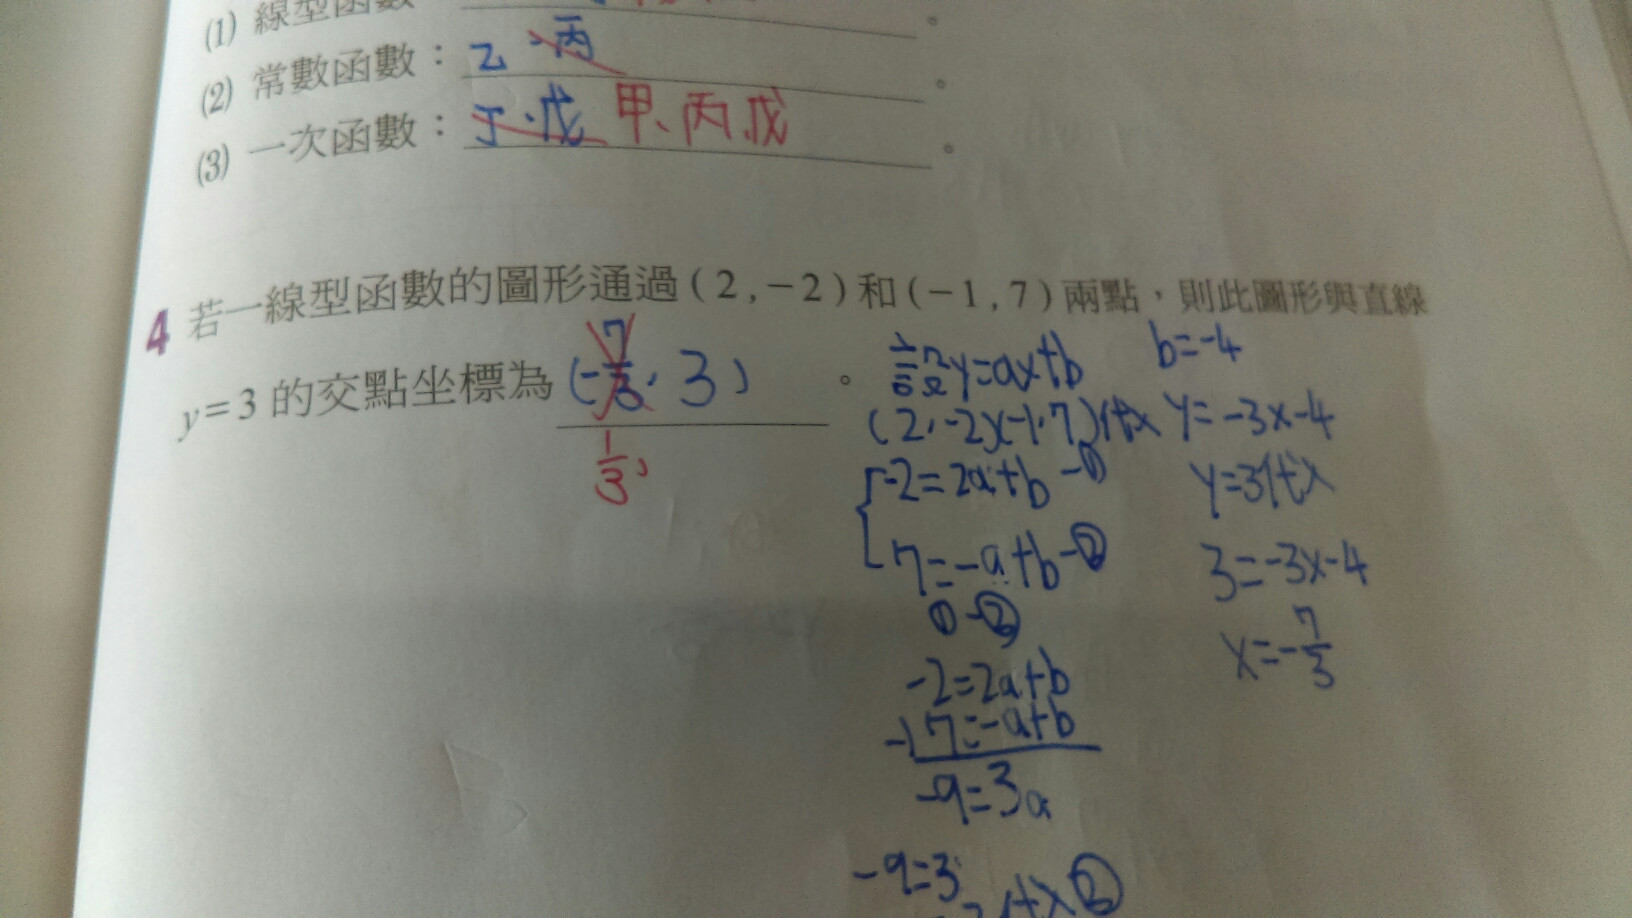 (1) 線型函數
。
(2) 常數函數：乙、丙。
(3) 一次函數：丁、戊 甲、丙、戊。
4 若一線型函數的圖形通過(2,-2)和(-1,7)兩點，則此圖形與直線
y=3的交點坐標為(-7/3, 3)。
1/3,
設y=ax+b
(2,-2)(-1,7)代入
-2=2a+b-①
7=-a+b-②
①-②
-2=2a+b
-) 7=-a+b
-9=3a
-9=3
代入②
b=-4
y=-3x-4
y=3代入
3=-3x-4
x=-7/3